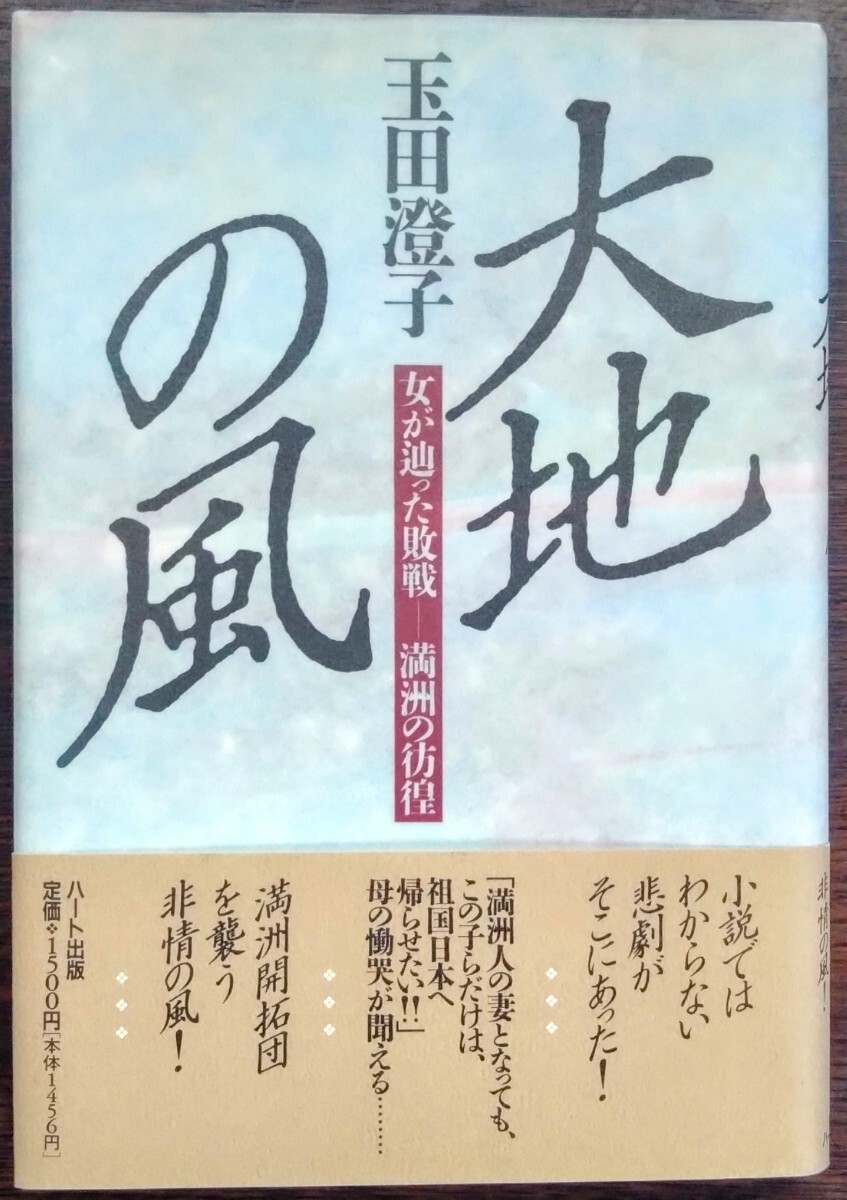 大地
の風
玉田澄子
女が辿った敗戦―満洲の彷徨
小説では
わからない
悲劇が
そこにあった!
「満洲人の妻となっても、
この子らだけは、
祖国日本へ
帰らせたい!!」
母の慟哭が聞える………
満洲開拓団
を襲う
非情の風!
ハート出版
定価❖1500円[本体1456円]
非情の風!